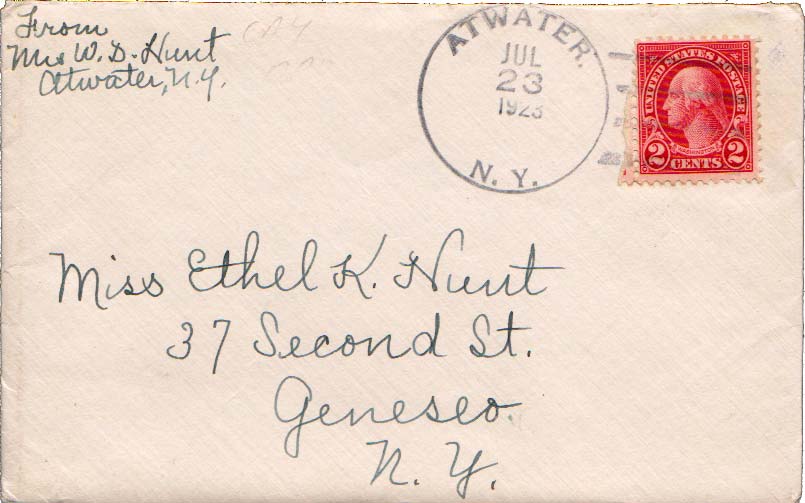 From
Mrs W. D. Hunt
Atwater, N.Y.
ATWATER.
JUL
23
1923
N. Y.
UNITED STATES POSTAGE
WASHINGTON
2 CENTS 2
Miss Ethel K. Hunt
37 Second St.
Geneseo
N. Y.